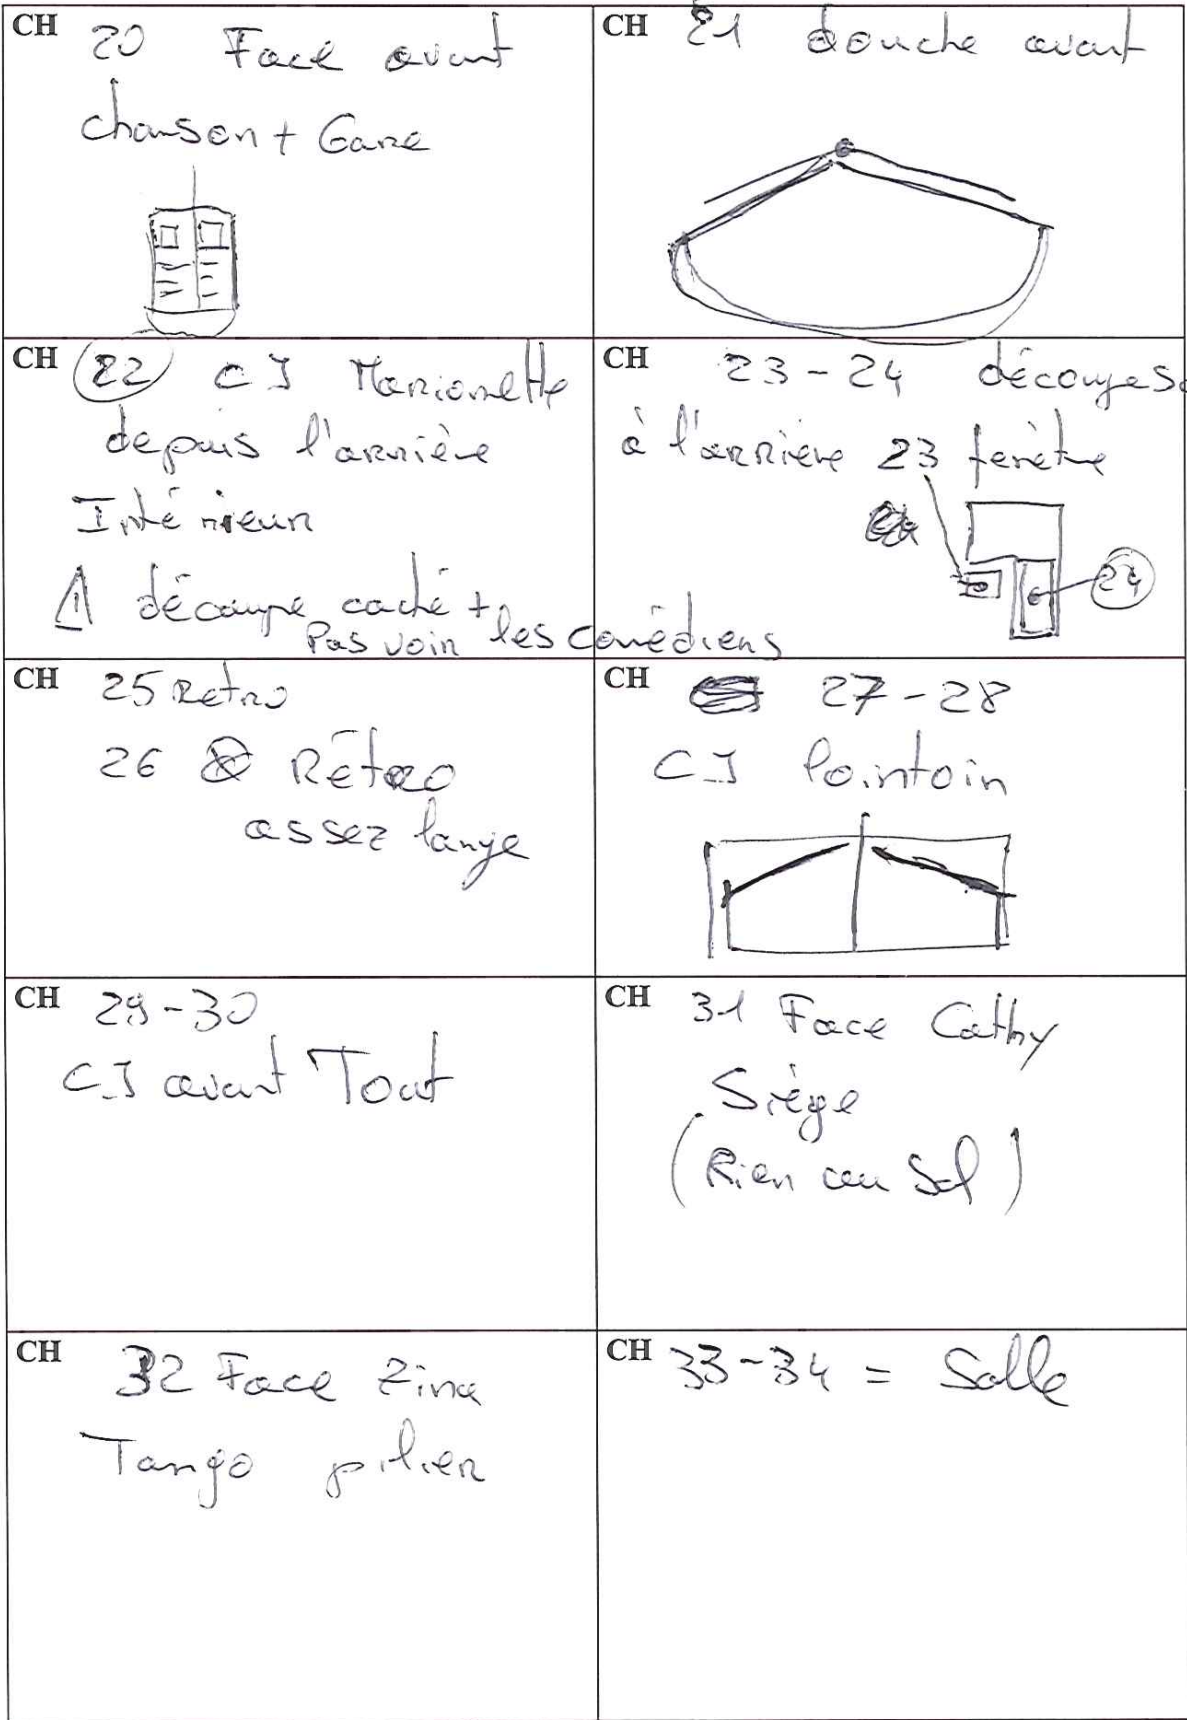 CH 20 Face avant
chanson + Gare
CH 21 douche avant
CH 22 CJ Marionette
depuis l'arrière
Intérieur
⚠ découpe caché +
Pas voir les comédiens
CH 23 - 24 découpes
à l'arrière 23 fenêtre
24
CH 25 Retro
26 Rétro
assez large
CH 27 - 28
CJ lointain
CH 29 - 30
CJ avant Tout
CH 31 Face Cathy
Siège
(Rien au Sol)
CH 32 Face Zina
Tango pilier
CH 33 - 34 = Salle